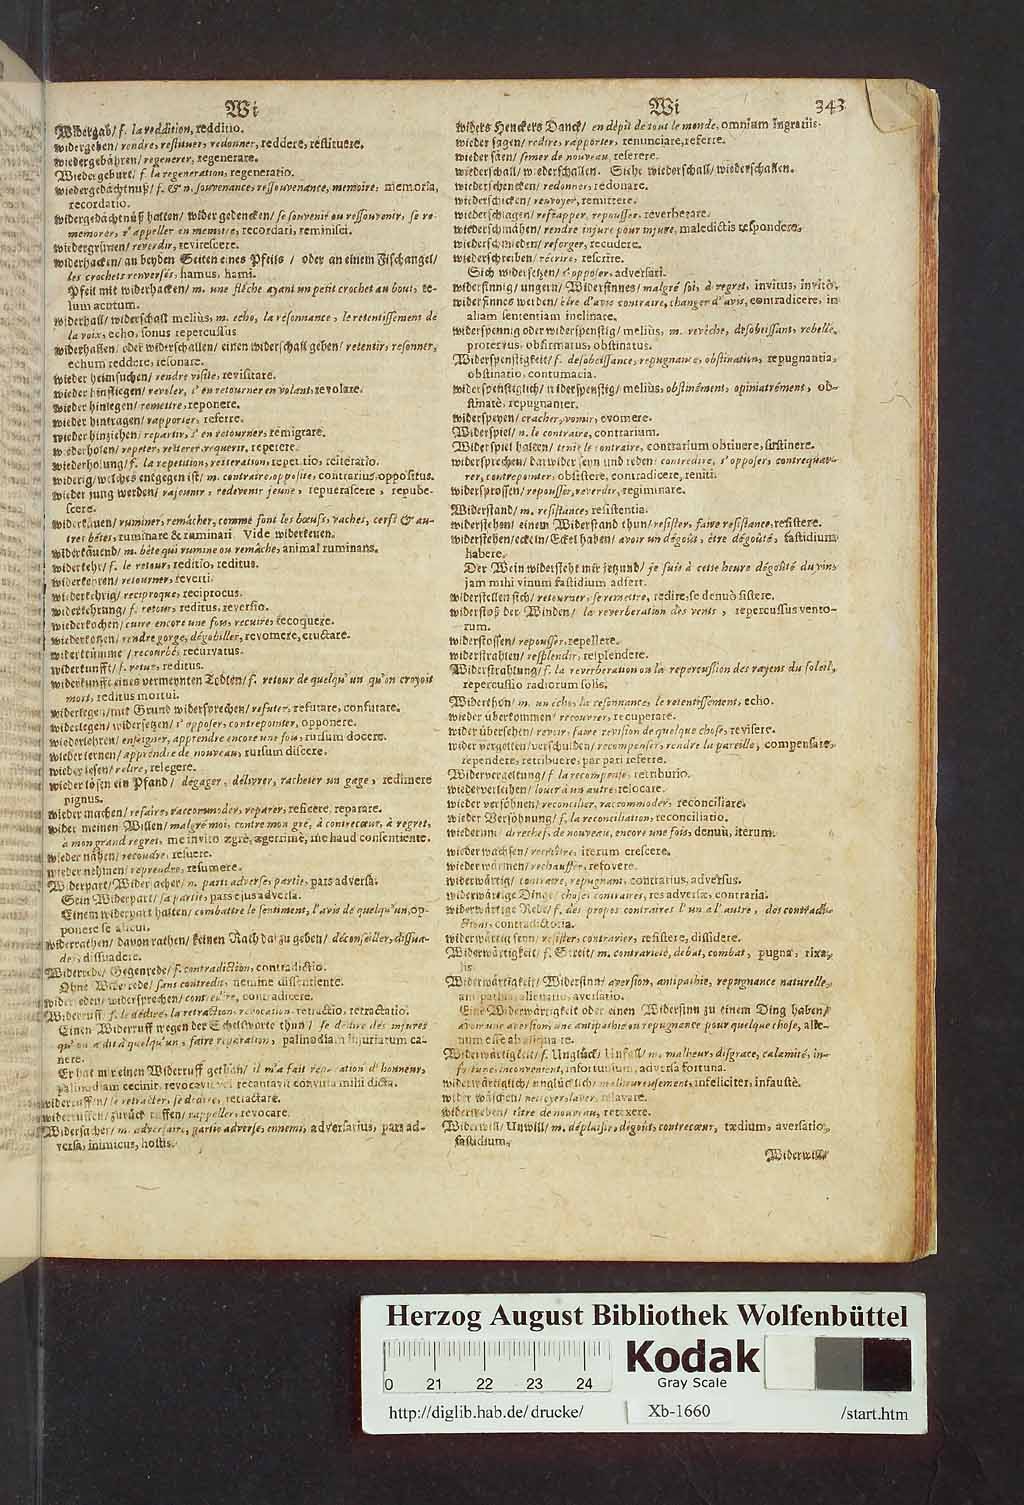 Wi
Widergab/ f. la reddition, redditio.
widergeben/ rendre, restituer, redonner, reddere, restituere.
wiedergebähren/ regenerer, regenerare.
Wiedergeburt/ f. la regeneration, regeneratio.
wiedergedächtnuß/ f. & n. souvenance, ressouvenance, memoire, memoria,
recordatio.
widergedächtnüß halten/ wider gedencken/ se souvenir ou ressouvenir, se re-
memorer, s'appeller en memoire, recordari, reminisci.
wiedergrünen/ reverdir, revirescere.
widerhacken/ an beyden Seiten eines Pfeils / oder an einem Fischangel/
les crochets renversés, hamus, hami.
Pfeil mit widerhacken/ m. une fléche ayant un petit crochet au bout, te-
lum acutum.
widerhall/ widerschall meliùs, m. echo, la resonnance, le retentissement de
la voix, echo, sonus repercussus
widerhallen/ oder widerschallen/ einen widerschall geben/ retentir, resonner,
echum reddere, resonare.
wieder heimsuchen/ rendre visite, revisitare.
wieder hinfliegen/ revoler, s'en retourner en volant, revolare.
wieder hinlegen/ remettre, reponere.
wieder hintragen/ rapporter, referre.
wieder hinziehen/ repartir, s'en retourner, remigrare.
wiederholen/ repeter, reiterer, requerir, repetere.
wiederholung/ f. la repetition, reiteration, repetitio, reiteratio.
widerig/ welches entgegen ist/ m. contraire, opposite, contrarius, oppositus.
wieder jung werden/ rajeunir, redevenir jeune, repuerascere, repube-
scere.
widerkäuen/ ruminer, remâcher, comme font les bœufs, vaches, cerfs & au-
tres bêtes, ruminare & ruminari. Vide widerkeuen.
widerkäuend/ m. bête qui rumine ou remâche, animal ruminans.
widerkehr/ f. le retour, reditio, reditus.
widerkehren/ retourner, reverti.
widerkehrig/ reciproque, reciprocus.
widerkehrung/ f. retour, reditus, reversio.
wiederkochen/ cuire encore une fois, recuire, recoquere.
wiederkotzen/ rendre gorge, dégobiller, revomere, eructare.
widerkrümme/ recourbé, recurvatus.
widerkunfft/ f. retour, reditus.
widerkunfft eines vermeynten Todten/ f. retour de quelqu'un qu'on croyoit
mort, reditus mortui.
widerlegen/ mit Grund widersprechen/ refuter, refutare, confutare.
widerlegen/ widersetzen/ s'opposer, contrepointer, opponere.
wiederlehren/ enseigner, apprendre encore une fois, rursum docere.
wiederlernen/ apprendre de nouveau, rursum discere.
wiederlesen/ relire, relegere.
wieder lösen ein Pfand/ dégager, délivrer, racheter un gage, redimere
pignus.
wieder machen/ refaire, raccommoder, reparer, reficere, reparare.
wider meinen Willen/ malgré moi, contre mon gré, à contrecœur, à regret,
à mon grand regret, me invito ægrè, ægerrimè, me haud consentiente.
wieder nähen/ recoudre, resuere.
wieder nehmen/ reprendre, resumere.
Widerpart/ Widersacher/ n. parti adverse, partie, pars adversa.
Sein Widerpart/ sa partie, pars ejus adversa.
Einem widerpart halten/ combattre le sentiment, l'avis de quelqu'un, op-
ponere se alicui.
widerrathen/ davon rathen/ keinen Rath dazu geben/ déconseiller, dissua-
der, dissuadere.
Widerrede/ Gegenrede/ f. contradiction, contradictio.
Ohne Widerrede/ sans contredit, nemine dissentiente.
wider reden/ widersprechen/ contredire, contradicere.
Widerruff/ f. le dédire, la retraction, revocation, retractio, retractatio.
Einen Widerruff wegen der Scheltworte thun/ se dédire des injures
qu'on a dit à quelqu'un, faire reparation, palinodiam injuriarum ca-
nere.
Er hat mir einen Widerruff gethan/ il m'a fait reparation d'honneur,
palinodiam cecinit, revocavit vel recantavit convitia mihi dicta.
widerruffen/ se retracter, se dédire, retractare.
widerruffen/ zurück ruffen/ rappeller, revocare.
Widersacher/ m. adversaire, partie adverse, ennemi, adversarius, pars ad-
versa, inimicus, hostis.
Wi
343
widers Henckers Danck/ en dépit de tout le monde, omnium ingratiis.
wieder sagen/ redire, rapporter, renunciare, referre.
wieder säen/ semer de nouveau, reserere.
wiederschall/ wiederschallen. Siehe wiederschall/ wiederschallen.
wiederschencken/ redonner, redonare.
wiederschicken/ renvoyer, remittere.
wiederschlagen/ refrapper, repousser, reverberare.
wiederschmähen/ rendre injure pour injure, maledictis respondere.
wiederschmieden/ reforger, recudere.
wiederschreiben/ récrire, rescribere.
Sich widersetzen/ s'opposer, adversari.
widersinnig/ ungern/ Widersinnes/ malgré soi, à regret, invitus, invitò.
widersinnes werden/ être d'avis contraire, changer d'avis, contradicere, in
aliam sententiam inclinare.
widerspennig oder widerspenstig/ meliùs, m. revêche, desobeissant, rebelle,
protervus, obfirmatus, obstinatus.
Widerspenstigkeit/ f. desobeissance, repugnance, obstination, repugnantia,
obstinatio, contumacia.
widerspenstiglich/ widerspenstig/ meliùs, obstinément, opiniatrément, ob-
stinatè, repugnanter.
widerspeyen/ cracher, vomir, evomere.
Widerspiel/ n. le contraire, contrarium.
Widerspiel halten/ tenir le contraire, contrarium obtinere, sustinere.
widersprechen/ darwider seyn und reden/ contredire, s'opposer, contrequar-
rer, contrepointer, obsistere, contradicere, reniti.
widersprossen/ repousser, reverdir, regiminare.
Widerstand/ m. resistance, resistentia.
widerstehen/ einem Widerstand thun/ resister, faire resistance, resistere.
widerstehen/ eckeln/ Eckel haben/ avoir un dégoût, être dégoûté, fastidium
habere.
Der Wein widersteht mir jetzund/ je suis à cette heure dégoûté du vin,
jam mihi vinum fastidium adfert.
widerstellen sich/ retourner, se remettre, redire, se denuò sistere.
widerstoß der Winden/ la reverberation des vents, repercussus vento-
rum.
widerstossen/ repousser, repellere.
widerstrahlen/ resplendir, resplendere.
Widerstrahlung/ f. la reverberation ou la repercussion des rayons du soleil,
repercussio radiorum solis.
Widerthon/ m. un echo, la resonnance, le retentissement, echo.
wieder überkommen/ recouvrer, recuperare.
wieder übersehen/ revoir, faire revision de quelque chose, revisere.
wider vergelten/ verschulden/ recompenser, rendre la pareille, compensare,
rependere, retribuere, par pari referre.
Widervergeltung/ f. la recompense, retributio.
wiederverleihen/ louer à un autre, relocare.
wieder versöhnen/ reconcilier, raccommoder, reconciliare.
wieder Versöhnung/ f. la reconciliation, reconciliatio.
wiederum/ derechef, de nouveau, encore une fois, denuò, iterum.
wieder wachsen/ recroître, iterum crescere.
wieder wärmen/ rechauffer, refovere.
widerwärtig/ contraire, repugnant, contrarius, adversus.
widerwärtige Dinge/ choses contraires, res adversæ, contraria.
widerwärtige Rede/ f. des propos contraires l'un a l'autre, des contradi-
ctions, contradictoria.
widerwärtig seyn/ resister, contrarier, resistere, dissidere.
Widerwärtigkeit/ f. Streit/ m. contrarieté, debat, combat, pugna, rixa,
lis.
Widerwärtigkeit/ Widersinn/ aversion, antipathie, repugnance naturelle,
antipathia, alienatio, aversatio.
Eine Widerwärtigkeit oder einen Widersinn zu einem Ding haben/
avoir une aversion, une antipathie ou repugnance pour quelque chose, alie-
num esse ab aliqua re.
Widerwärtigkeit/ f. Unglück/ Unfall/ m. malheur, disgrace, calamité, in-
fortune, inconvenient, infortunium, adversa fortuna.
widerwärtiglich/ unglücklich/ malheureusement, infeliciter, infaustè.
wider wäschen/ nettoyer, laver, relavare.
widerweben/ titre de nouveau, retexere.
Widerwill/ Unwill/ m. déplaisir, dégoût, contrecœur, tædium, aversatio,
fastidium,
Widerwill/
Herzog August Bibliothek Wolfenbüttel
Kodak
Gray Scale
0 21 22 23 24
http://diglib.hab.de/drucke/ Xb-1660 /start.htm